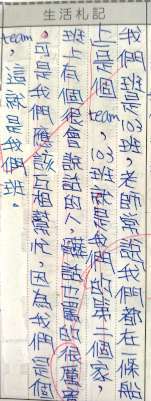 生活札記
我們班是103班,老師常說我們都在一條船
上是個team,103班就是我們的第二個家,
班上有個很會說話的人,講話也罵的很厲害
。可是我們應該互相幫忙,因為我們是個
team,這就是我們班。